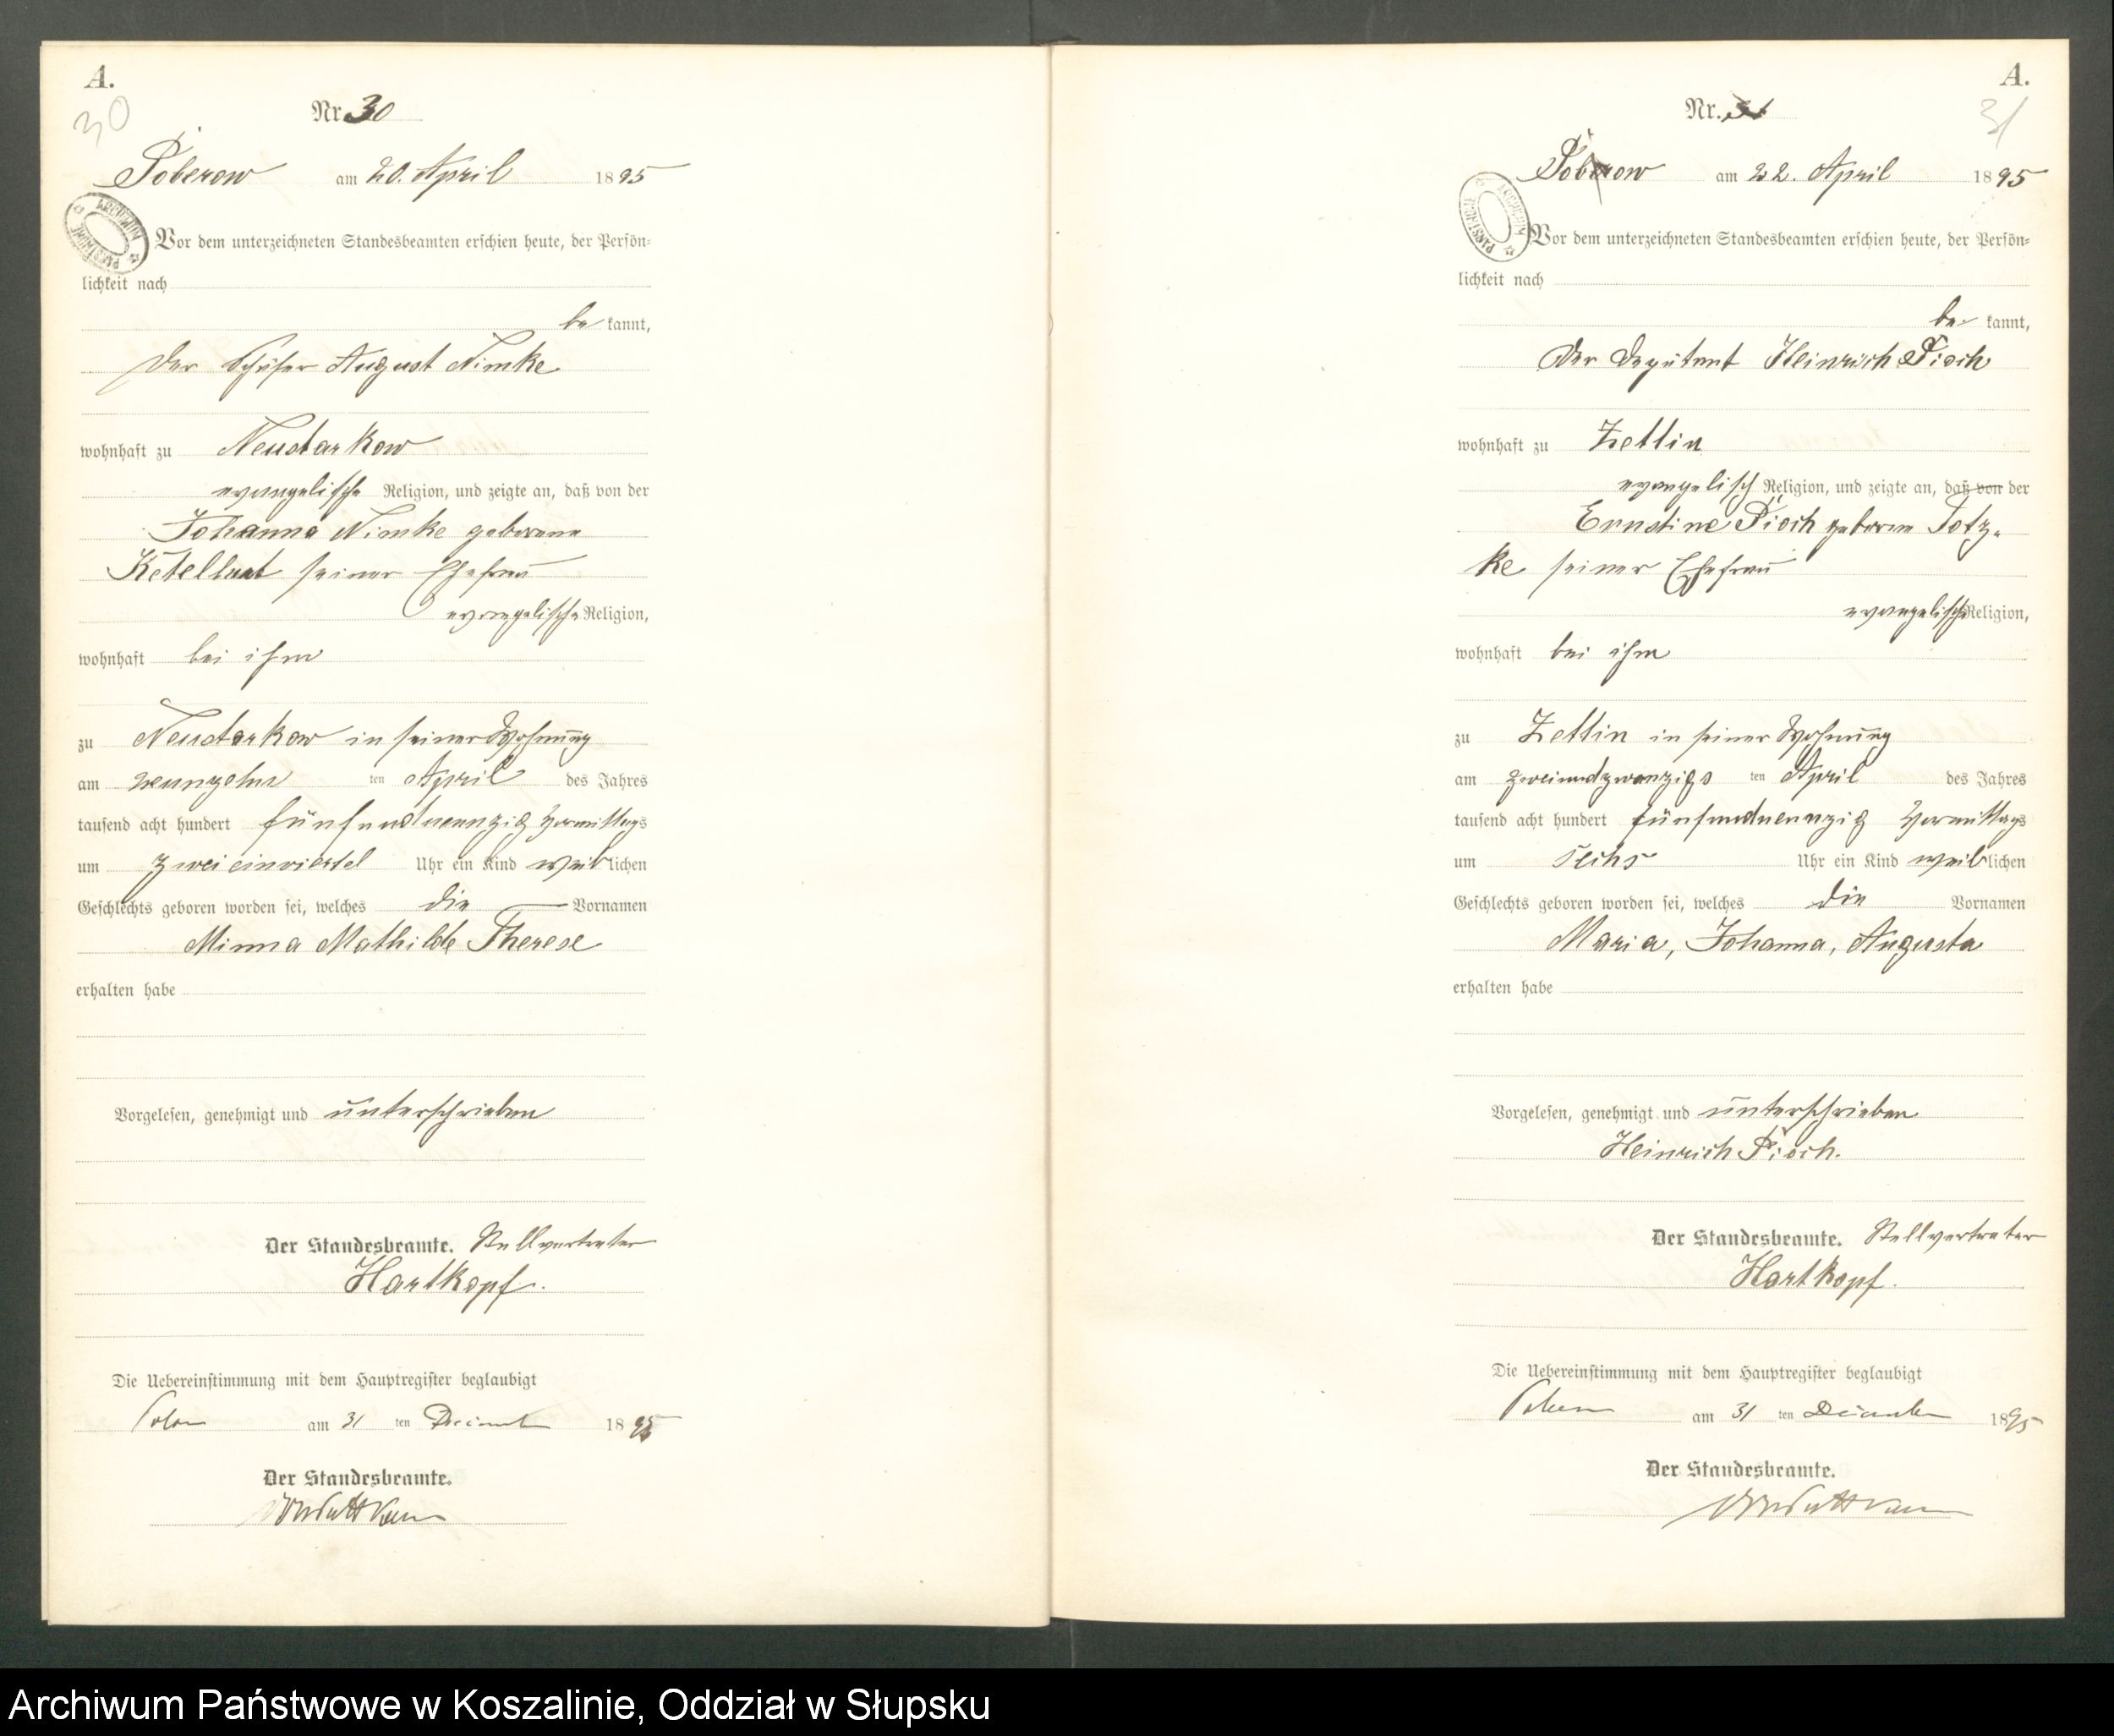 A.
30
Nr. 30
Poberow am 20. April 1895
ARCHIWUM PAŃSTWOWE
Vor dem unterzeichneten Standesbeamten erschien heute, der Persön-
lichkeit nach
be kannt,
der Schäfer August Nimke
wohnhaft zu Neudarkow
evangelische Religion, und zeigte an, daß von der
Johanna Nimke geborene
Ketelhut seiner Ehefrau
evangelische Religion,
wohnhaft bei ihm
zu Neudarkow in seiner Wohnung
am neunzehn ten April des Jahres
tausend acht hundert fünfundneunzig Vormittags
um zwei einviertel Uhr ein Kind weiblichen
Geschlechts geboren worden sei, welches die Vornamen
Minna Mathilde Therese
erhalten habe
Vorgelesen, genehmigt und unterschrieben
Der Standesbeamte. Stellvertreter
Hartkopf.
Die Uebereinstimmung mit dem Hauptregister beglaubigt
am 31 ten December 1895
Der Standesbeamte.
A.
31
Nr. 31
Poberow am 22. April 1895
ARCHIWUM PAŃSTWOWE
Vor dem unterzeichneten Standesbeamten erschien heute, der Persön-
lichkeit nach
be kannt,
Der Deputant Heinrich Pioch
wohnhaft zu Zettin
evangelisch Religion, und zeigte an, daß von der
Ernstine Pioch geborene Totz-
ke seiner Ehefrau
evangelische Religion,
wohnhaft bei ihm
zu Zettin in seiner Wohnung
am zweiundzwanzigs ten April des Jahres
tausend acht hundert fünfundneunzig Vormittags
um sechs Uhr ein Kind weiblichen
Geschlechts geboren worden sei, welches die Vornamen
Maria, Johanna, Augusta
erhalten habe
Vorgelesen, genehmigt und unterschrieben
Heinrich Pioch.
Der Standesbeamte. Stellvertreter
Hartkopf.
Die Uebereinstimmung mit dem Hauptregister beglaubigt
am 31 ten December 1895
Der Standesbeamte.
Archiwum Państwowe w Koszalinie, Oddział w Słupsku